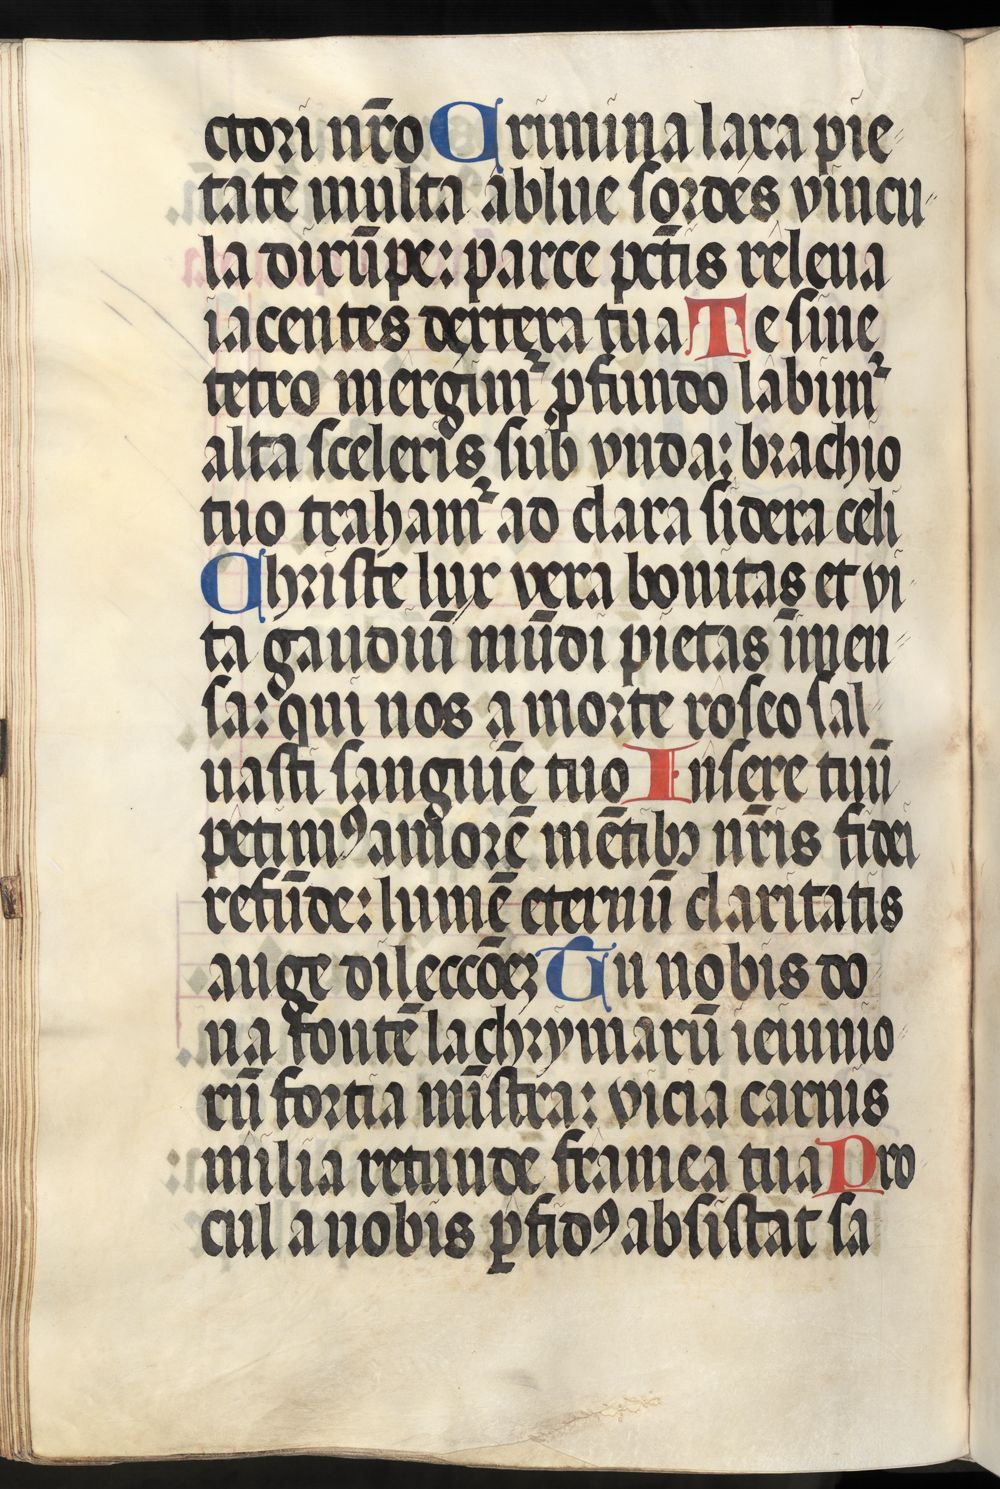 ctori nr̄o Crimina laxa pie
tate multa ablue sordes vincu
la dirūpe: parce pctīs releua
iacentes dextera tua Te sine
tetro mergimꝰ ꝓfundo labimꝰ
alta sceleris sub vnda: brachio
tuo trahamꝰ ad clara sidera celi
Christe lux vera bonitas et vi
ta gaudiū mūdi pietas īmen
sa: qui nos a morte roseo sal
uasti sanguīe tuo Insere tuū
petimꝰ amorē mētibꝫ nr̄is fidei
refūde: lumē eternū claritatis
auge dileccōeꝫ Tu nobis do
na fontē lachrymarū ieiunio
rū fortia mīstra: vicia carnis
milia retunde framea tua Pro
cul a nobis ꝑfidꝰ absistat sa